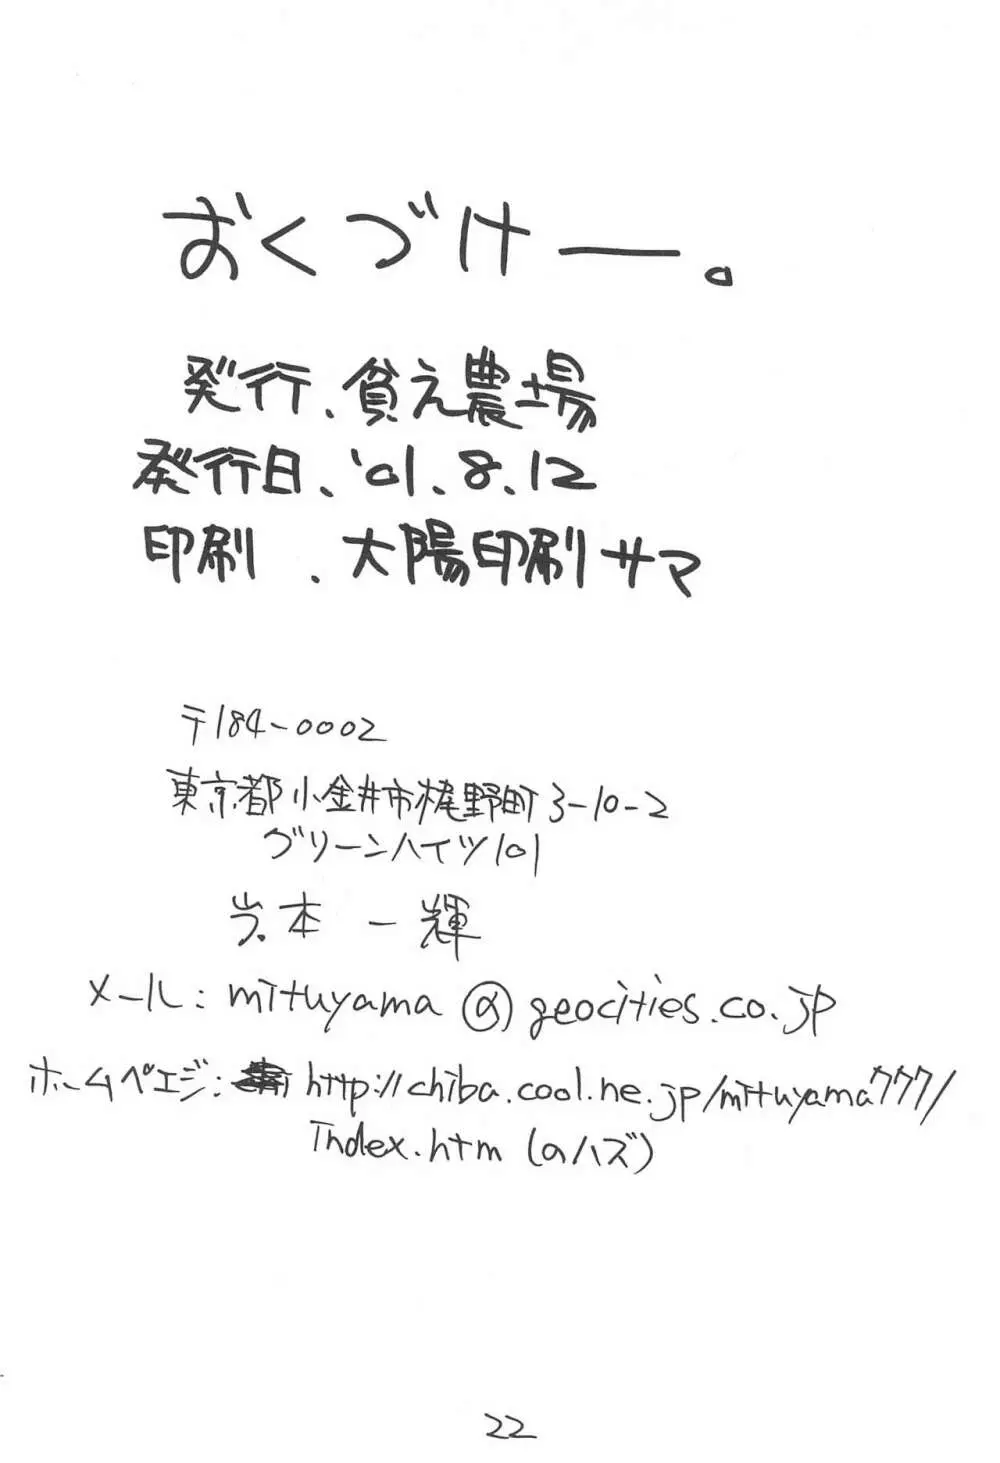 おくづけー。
発行、貧え農場
発行日、'01.8.12
印刷 . 大陽印刷サマ
〒184-0002
東京都小金井市梶野町3-10-2
グリーンハイツ101
岩本 一輝
メール: mituyama@geocities.co.jp
ホームペエジ: http://chiba.cool.ne.jp/mituyama777/
Index.htm (のハズ)
22